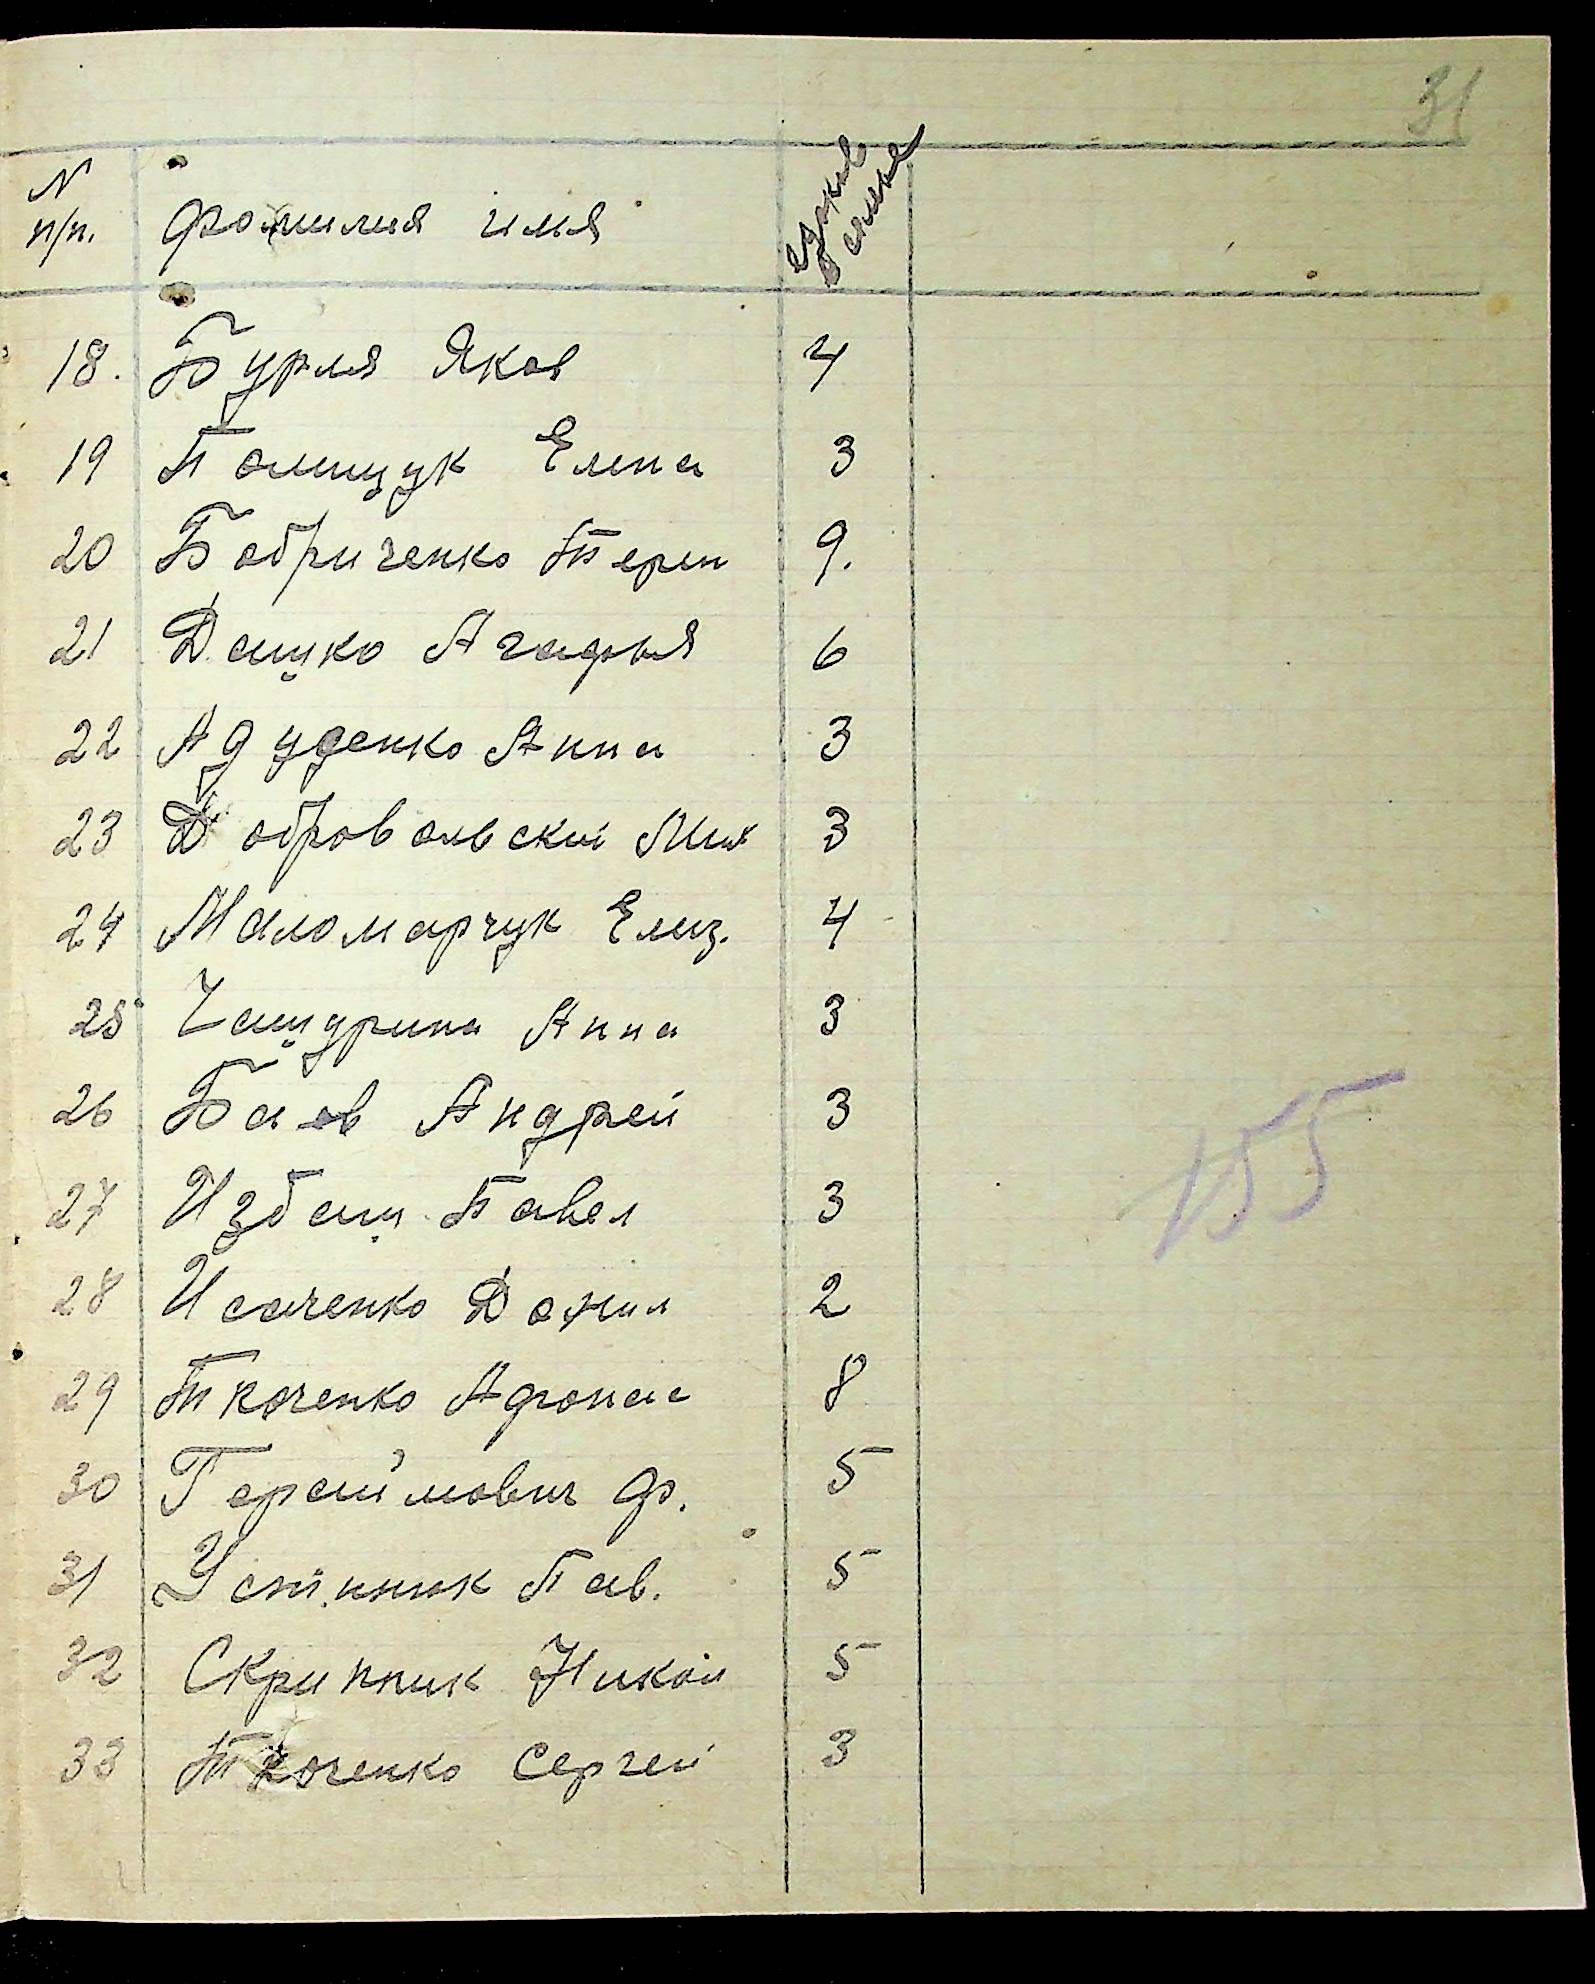 31
N п/п. фамилия имя едоков в семье
18. Бурля Яков 4
19 Полищук Елена 3
20 Бобриченко Терен 9.
21 Дацко Агафья 6
22 Адуденко Анна 3
23 Добровольский Мих 3
24 Маломарчук Елиз. 4
25 Чацурина Анна 3
26 Баев Андрей 3
27 Избаш Павел 3
28 Исаченко Данил 2
29 Ткаченко Афонас 8
30 Герасимович Ф. 5
31 Устинюк Пав. 5
32 Скрипник Никол 5
33 Ткаченко Сергей 3
155